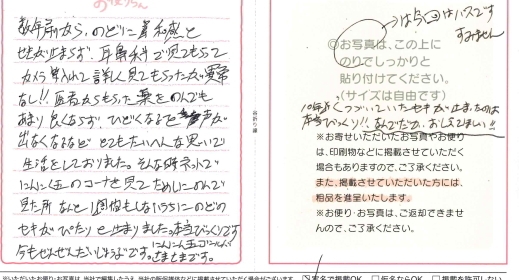 お便りちゃん
数年前から、のどに異和感と
せきが止まらず、耳鼻科で見てもらって
カメラ入れて詳しく見てもらったが異常
なし!!。医者からもらった薬をのんでも
あまり良くならず、ひどくなると声が
出なくなるなど とてもたいへんな思いで
生活をしておりました。そんな時ネットで
にんにく玉のコーナを見て ためしにのんで
見た所 なんと1週間もしないうちに のどの
セキがぴたりと止まりました。本当びっくりです
今もぜんぜんだいじょうぶです。にんにく玉ゴールド
さまさまです。
は今回はパスです
すみません
◎お写真は、この上に
のりでしっかりと
貼り付けてください。
(サイズは自由です)
10年近くつづいていたセキが止まったのは
本当びっくり!! なんでだか、おしえてほしい!!
※お寄せいただいたお写真やお便り
は、印刷物などに掲載させていただく
場合もありますので、ご了承ください。
また、掲載させていただいた方には、
粗品を進呈いたします。
※お便り・お写真は、ご返却できませ
んので、ご了承ください。
谷折り線
実名で掲載OK 仮名ならOK 掲載を許可しない